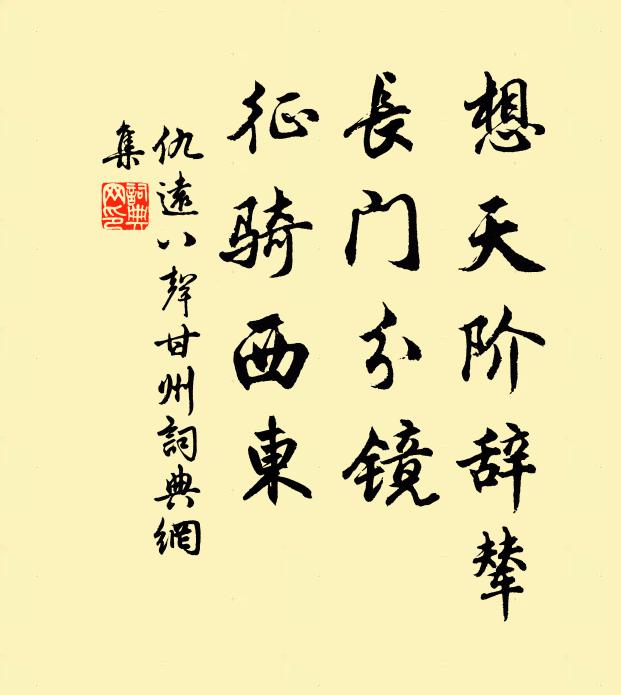 想天阶辞辇
長门分镜
征骑西東
仇遠八聲甘州詞典網
集
詞典
网印